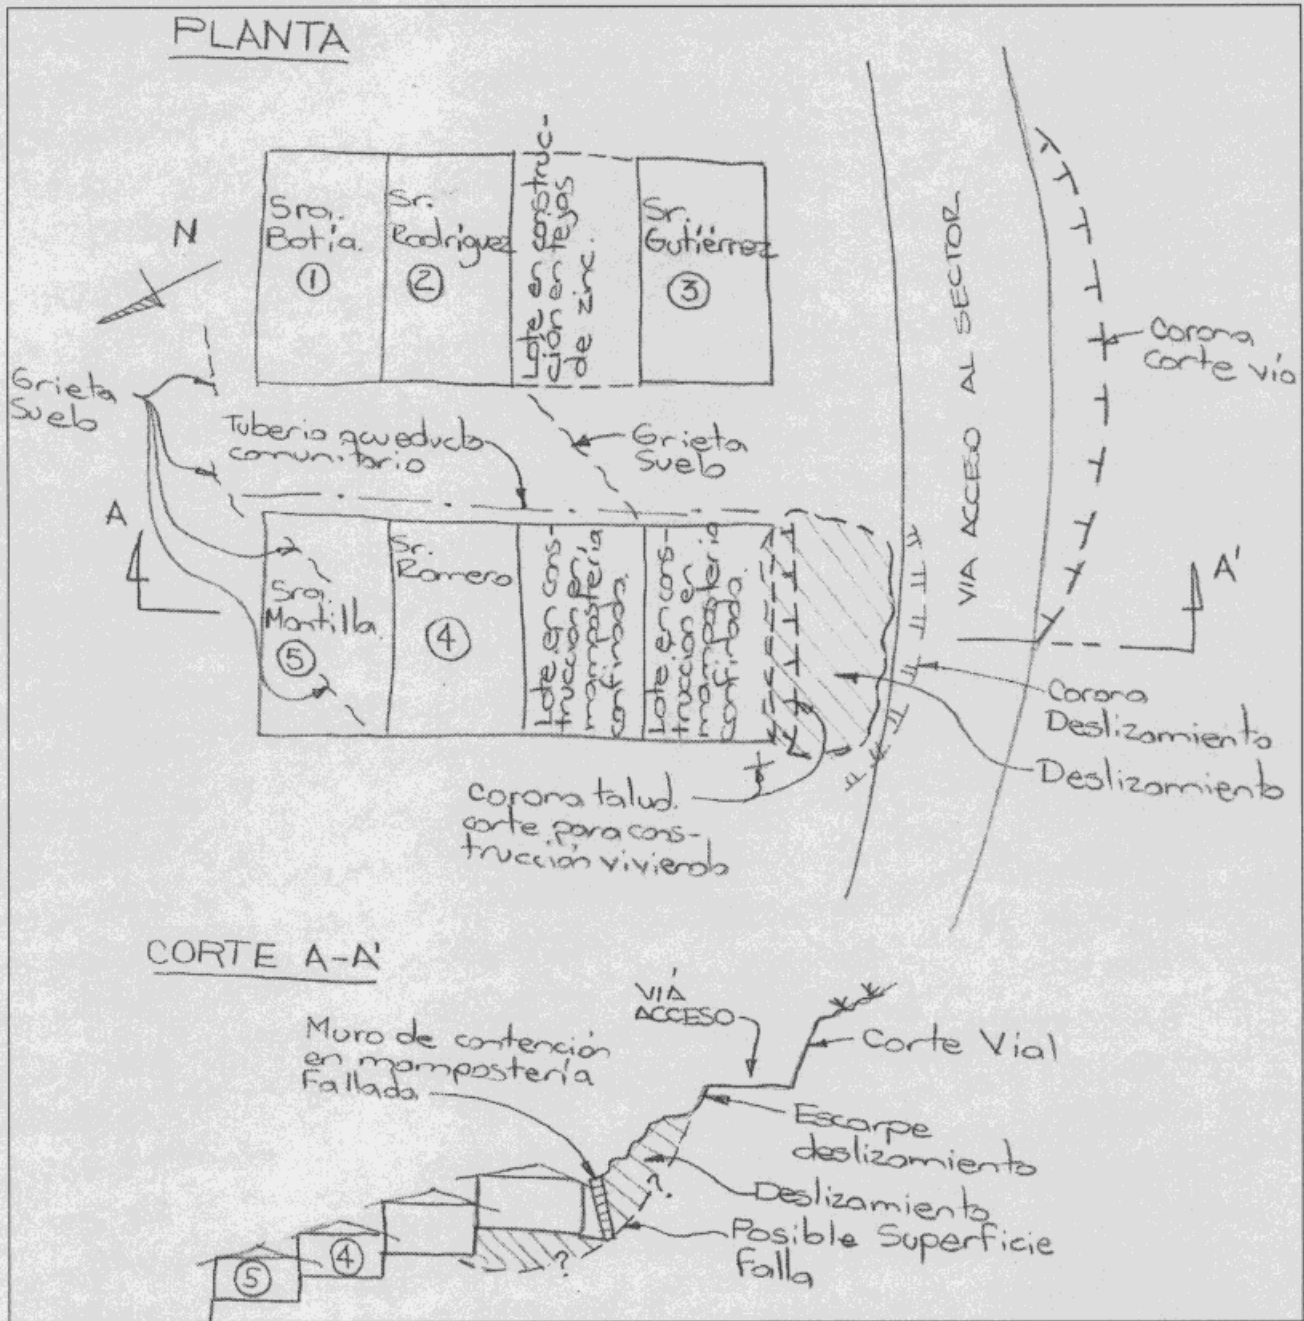 PLANTA
N
Sra.
Botía.
①
Sr.
Rodríguez
②
Lote en construc-
ción en tejas
de zinc.
Sr.
Gutiérrez
③
VIA ACCESO AL SECTOR
Corona
Corte vía
Grieta
Suelo
Tubería acueducto
comunitario
Grieta
Suelo
A
A'
Sra.
Montilla.
⑤
Sr.
Romero
④
Lote en cons-
trucción en
mampostería
confinada.
Lote en cons-
trucción en
mampostería
confinada.
Corona
Deslizamiento
Deslizamiento
Corona talud.
corte para cons-
trucción vivienda
CORTE A-A'
VIA
ACCESO
Corte Vial
Muro de contención
en mampostería
Fallada
Escarpe
deslizamiento
Deslizamiento
Posible Superficie
Falla
?
?
④
⑤